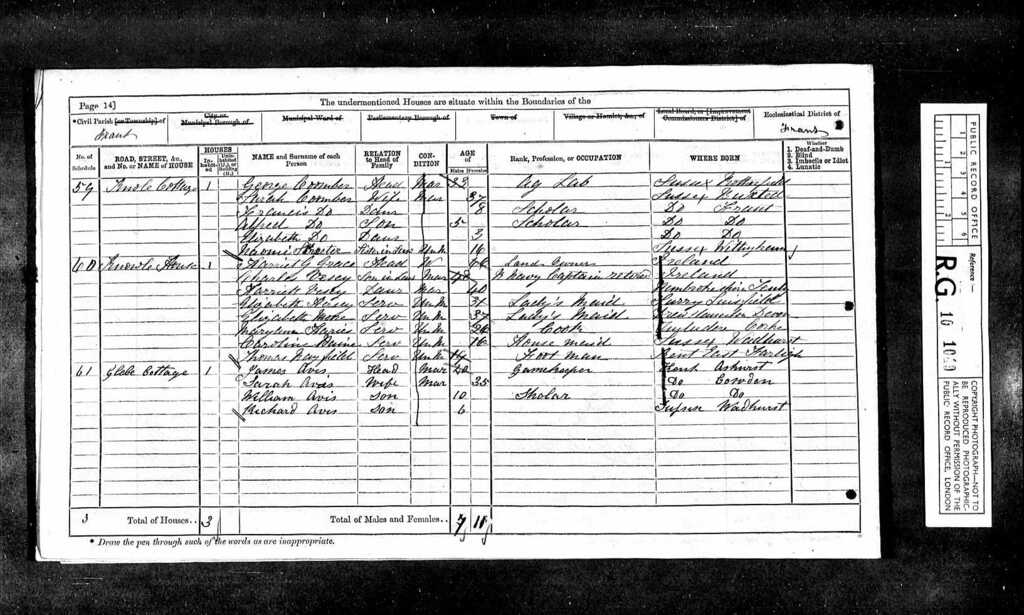 Page 14]
The undermentioned Houses are situate within the Boundaries of the
*Civil Parish [or Township] of
Frant
City or Municipal Borough of
Municipal Ward of
Parliamentary Borough of
Town of
Village or Hamlet, &c., of
Local Board, or [Improvement Commissioners District] of
Ecclesiastical District of
Frant
No. of Schedule
ROAD, STREET, &c., and No. or NAME of HOUSE
HOUSES
Inhabited
Uninhabited (U.), or Building (B.)
NAME and Surname of each Person
RELATION to Head of Family
CONDITION
AGE of
Males
Females
Rank, Profession, or OCCUPATION
WHERE BORN
Whether
1. Deaf-and-Dumb
2. Blind
3. Imbecile or Idiot
4. Lunatic
59 Knole Cottage 1 George Coomber Head Mar Ag Lab Sussex
Sarah Coomber Wife Mar 37 Sussex Buxted
Do Daur 8 Scholar Do Frant
Alfred Do Son 5 Scholar Do Do
Elizabeth Do Daur 3 Do Do
Naomi Unm 16 Sussex Withyham
60 Knowle House 1 Harriet G Head W Land Owner Ireland
Charles Vesey Son in law Mar Navy Captain retired Ireland
Harriett Vesey Daur Mar 40 Pembrokeshire Tenby
Elizabeth Serv Unm 31 Lady's Maid Surry
Elizabeth Serv Unm 37 Lady's Maid Devon
Maryann Serv Unm 26 Cook
Caroline Serv Unm 16 House maid Sussex Wadhurst
Thomas Serv Unm Foot man Kent East Farleigh
61 Glebe Cottage 1 James Avis Head Mar Gamekeeper Kent Ashurst
Sarah Avis Wife Mar 35 Do Cowden
William Avis son 10 Sholar Do Do
Richard Avis son 6 Sussex Wadhurst
3 Total of Houses.. 3 Total of Males and Females.. 7 11
* Draw the pen through such of the words as are inappropriate.
PUBLIC RECORD OFFICE
1 2 3 4 5 6
Reference :—
R.G. 10
COPYRIGHT PHOTOGRAPH—NOT TO
BE REPRODUCED PHOTOGRAPHIC-
ALLY WITHOUT PERMISSION OF THE
PUBLIC RECORD OFFICE, LONDON